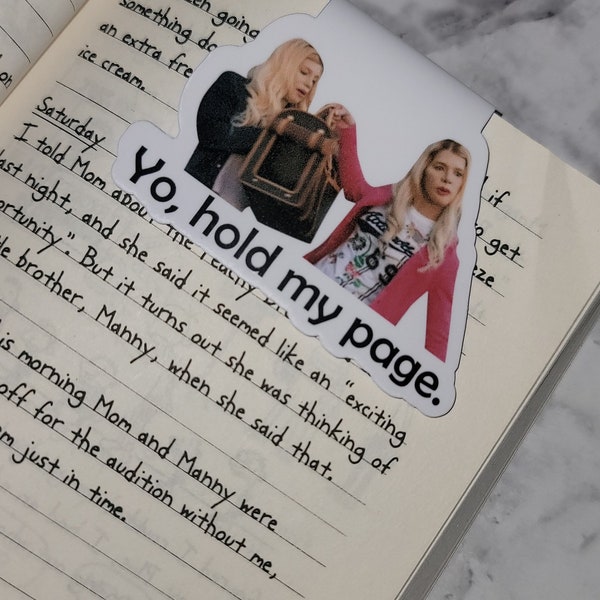 en going
something do
an extra fre
ice cream.
Saturday
I told Mom about the Peachy B
last night, and she said it seemed like an "exciting
ortunity". But it turns out she was thinking of
le brother, Manny, when she said that.
is morning Mom and Manny were
off for the audition without me,
m just in time.
if
o get
oze
on
Yo, hold my page.